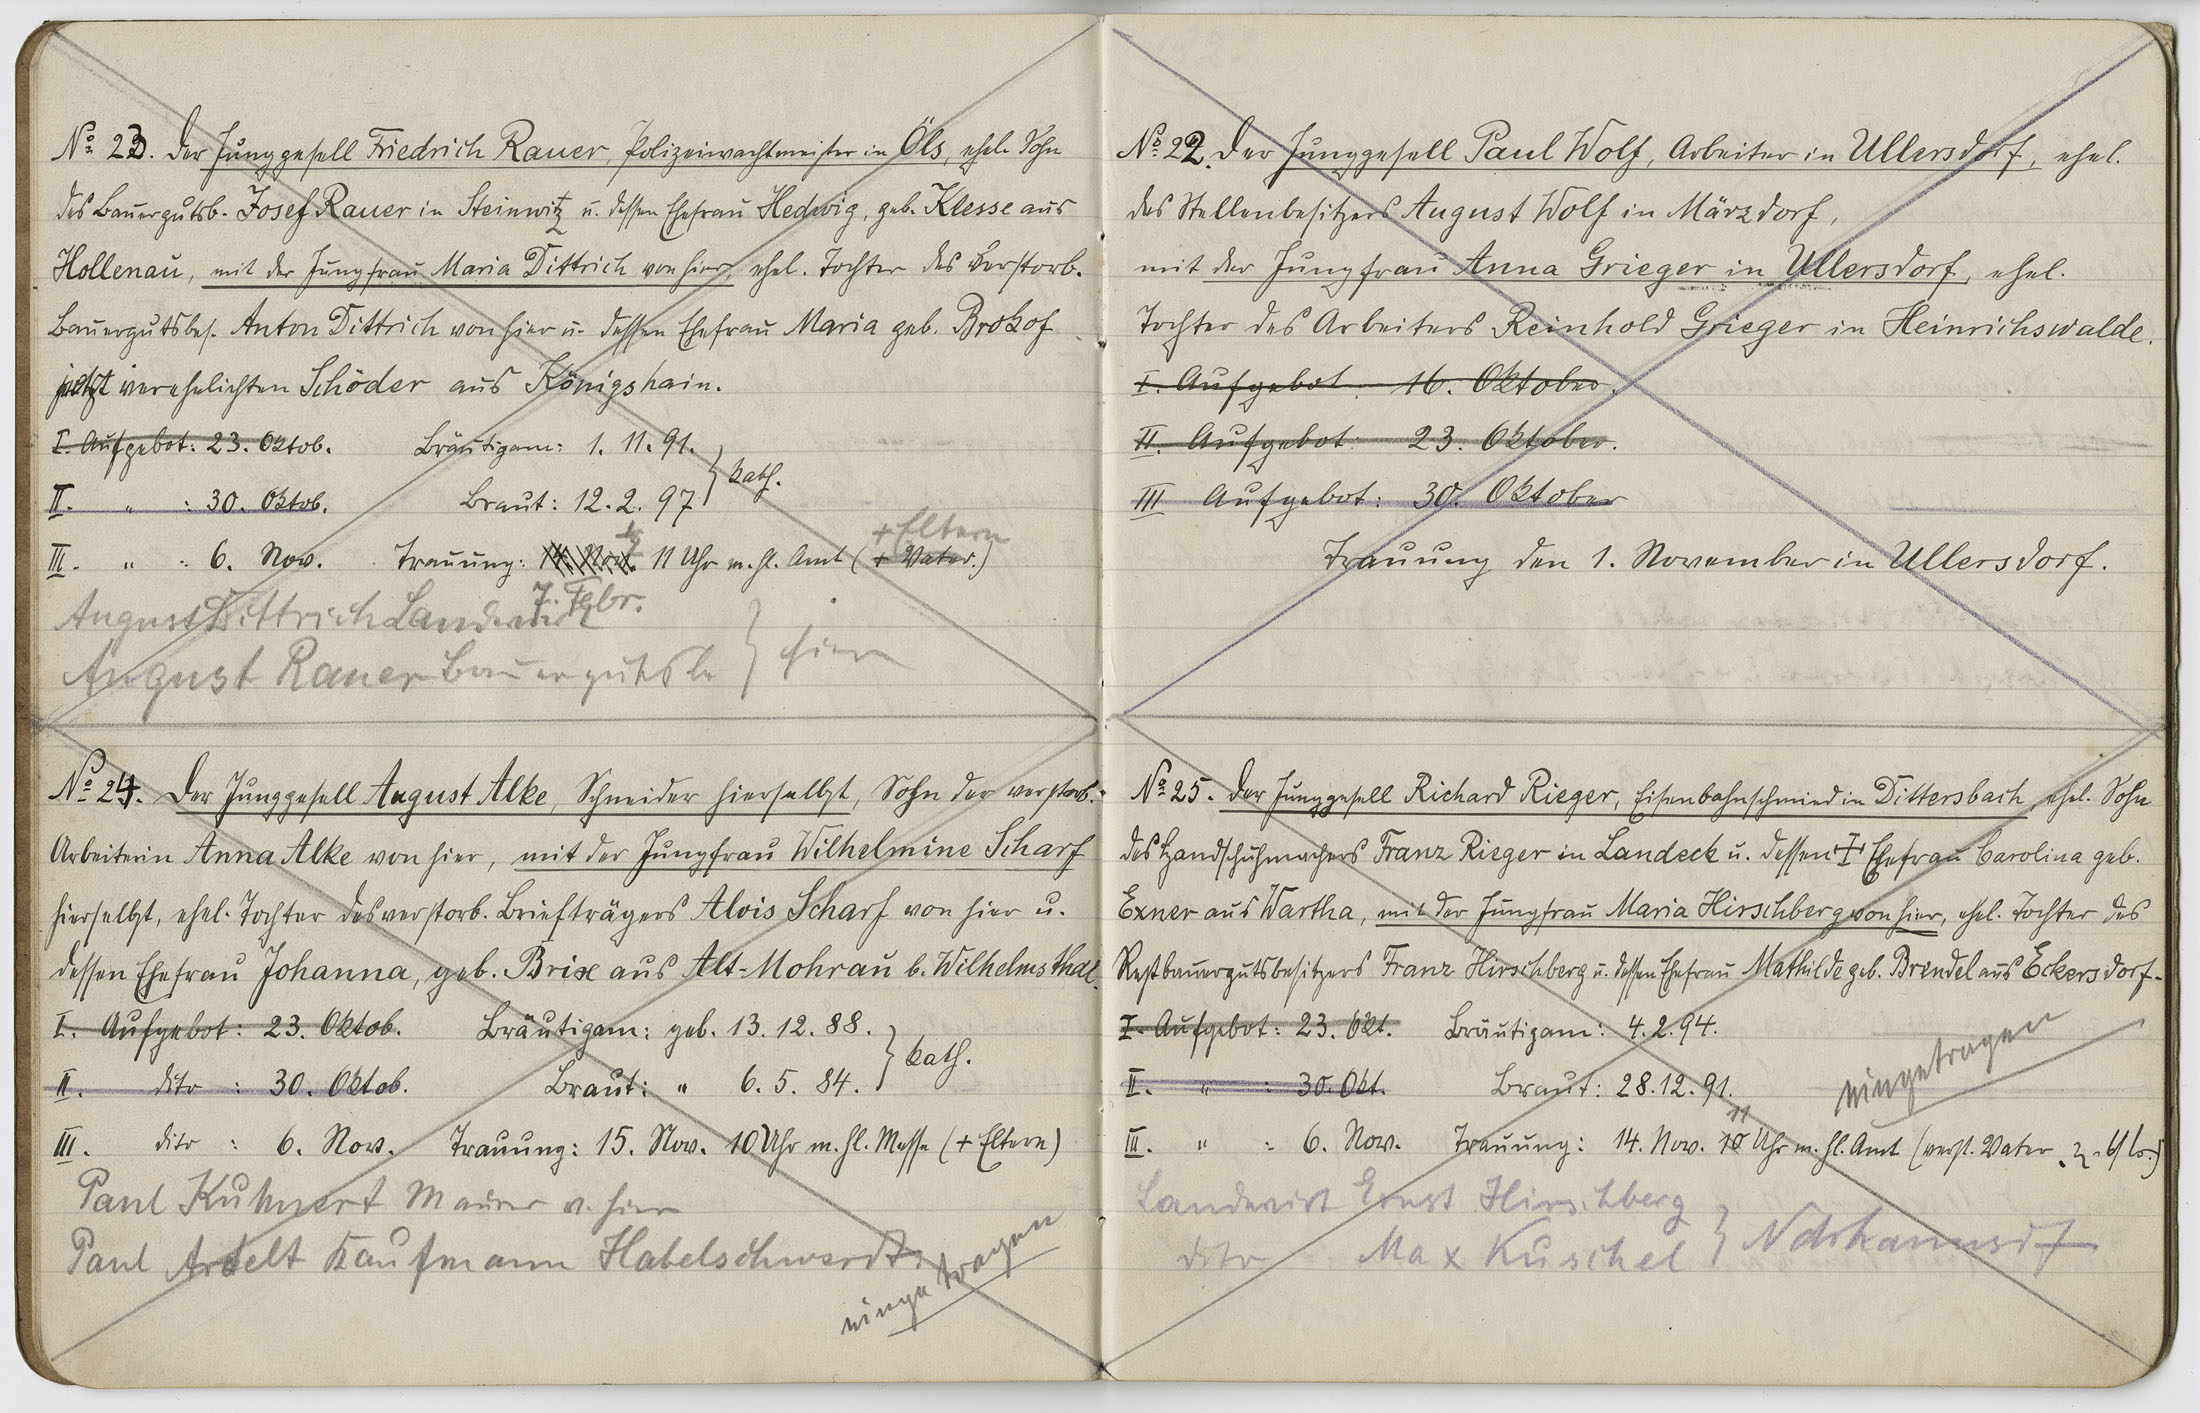 No 23. Der Junggesell Friedrich Rauer, Polizeiwachtmeister in Öls, ehel. Sohn
des Bauergutsb. Josef Rauer in Steinwitz u. dessen Ehefrau Hedwig, geb. Klesse aus
Hollenau, mit der Jungfrau Maria Dittrich von hier, ehel. Tochter des verstorb.
Bauergutsbes. Anton Dittrich von hier u. dessen Ehefrau Maria geb. Brokof
jetzt verehelichten Schöder aus Königshain.
I. Aufgebot: 23. Oktob. Bräutigam: 1. 11. 91.
II. " : 30. Oktob. Braut: 12. 2. 97 } kath.
III. " : 6. Nov. Trauung: 14. Nov. 11 Uhr m. hl. Amt (+ Vater.)
+ Eltern
7. Febr.
August Dittrich Landwirt
August Rauer Bauergutsb } hier
No 24. Der Junggesell August Alke, Schneider hierselbst, Sohn der verstorb.
Arbeiterin Anna Alke von hier, mit der Jungfrau Wilhelmine Scharf
hierselbst, ehel. Tochter des verstorb. Briefträgers Alois Scharf von hier u.
dessen Ehefrau Johanna, geb. Brix aus Alt-Mohrau b. Wilhelmsthal.
I. Aufgebot: 23. Oktob. Bräutigam: geb. 13. 12. 88.
II. dito : 30. Oktob. Braut: " 6. 5. 84. } kath.
III. dito : 6. Nov. Trauung: 15. Nov. 10 Uhr m. hl. Messe (+ Eltern)
Paul Kuhnert Maurer v. hier
Paul Ardelt Kaufmann Habelschwerdt.
eingetragen
No 22. Der Junggesell Paul Wolf, Arbeiter in Ullersdorf, ehel.
des Stellenbesitzers August Wolf in Märzdorf,
mit der Jungfrau Anna Grieger in Ullersdorf, ehel.
Tochter des Arbeiters Reinhold Grieger in Heinrichswalde.
I. Aufgebot 16. Oktober.
II. Aufgebot: 23. Oktober.
III Aufgebot: 30. Oktober
Trauung den 1. November in Ullersdorf.
No 25. Der Junggesell Richard Rieger, Eisenbahnschmied in Dittersbach, ehel. Sohn
des Handschuhmachers Franz Rieger in Landeck u. dessen + Ehefrau Carolina geb.
Exner aus Wartha, mit der Jungfrau Maria Hirschberg von hier, ehel. Tochter des
Restbauergutsbesitzers Franz Hirschberg u. dessen Ehefrau Mathilde geb. Brendel aus Eckersdorf.
I. Aufgebot: 23. Okt. Bräutigam: 4. 2. 94.
II. " : 30. Okt. Braut: 28. 12. 91.
eingetragen
11
III. " : 6. Nov. Trauung: 14. Nov. 10 Uhr m. hl. Amt (verst. Vater
Landwirt Ernst Hirschberg
dito Max Kuschel }